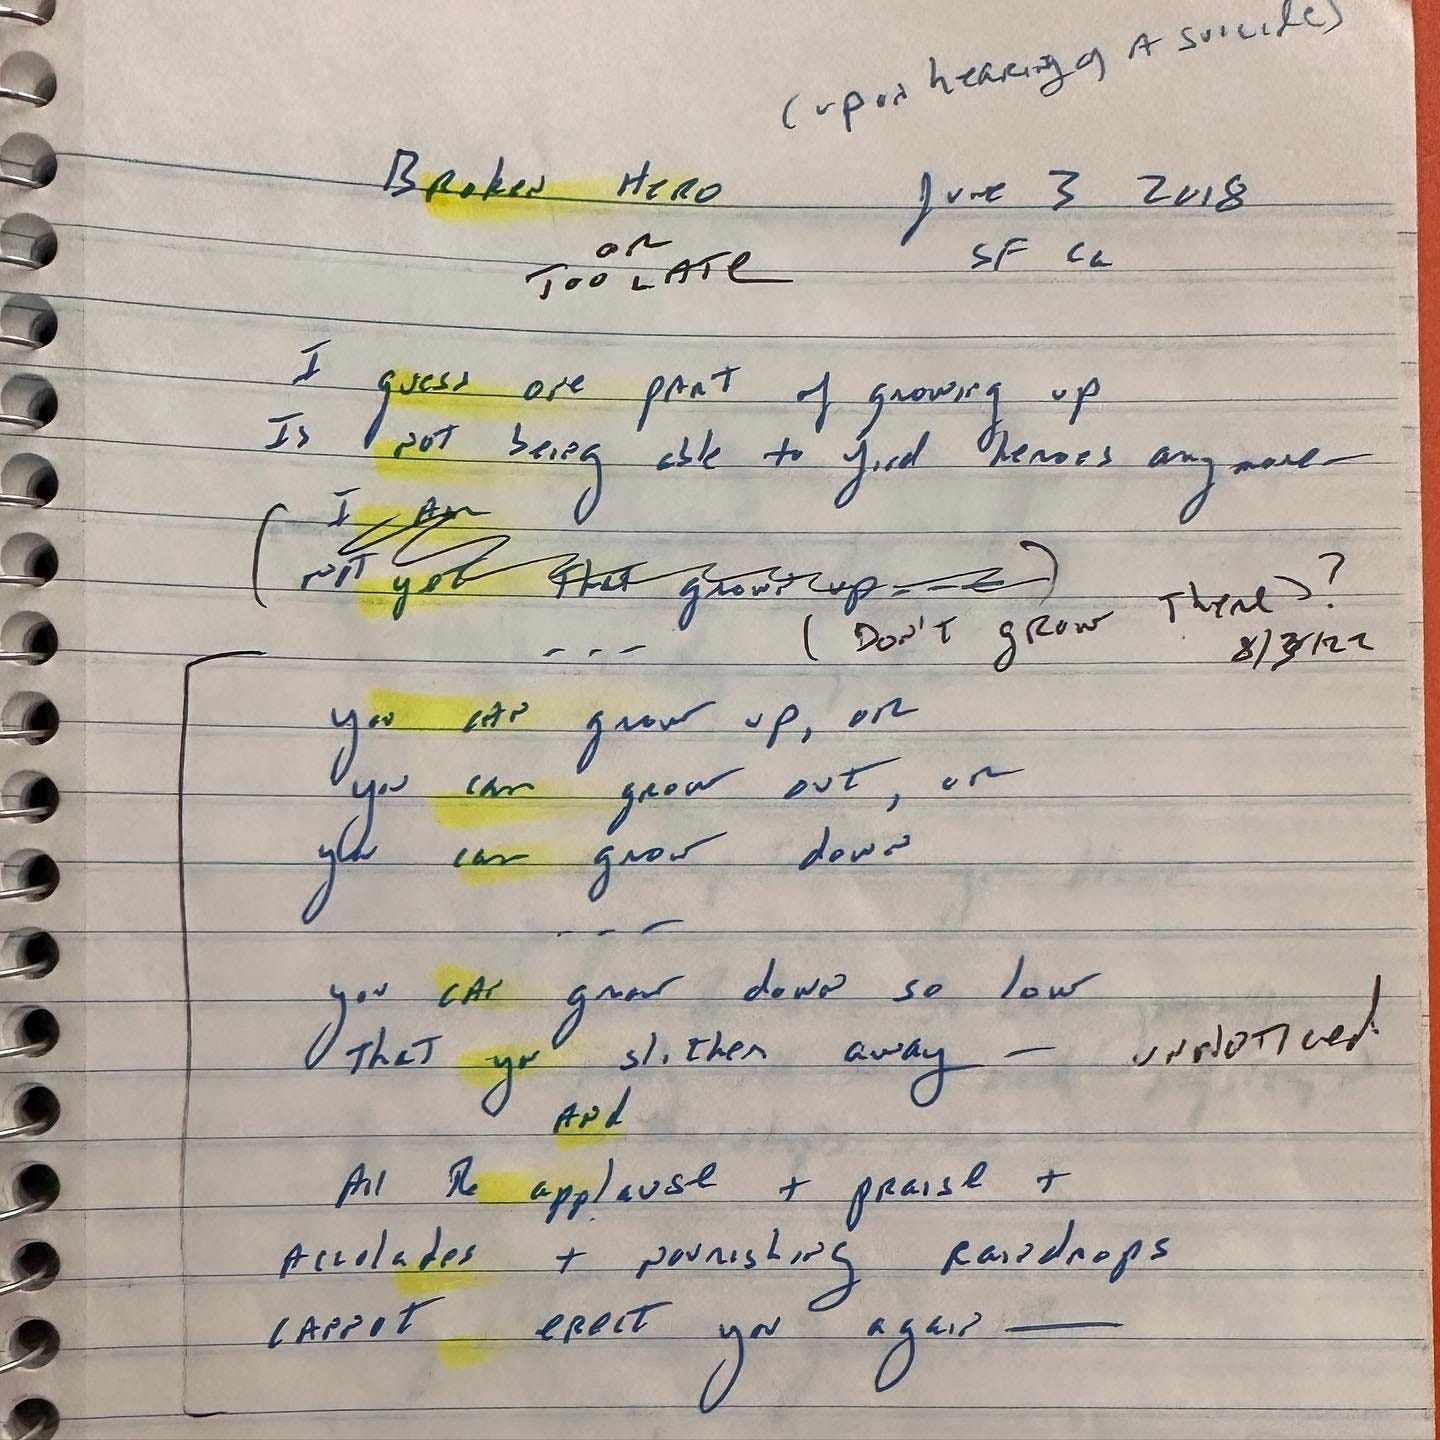 (upon hearing of A suicide)
Broken Hero June 3 2018
or SF Ca
Too LATE
I guess one part of growing up
Is not being able to find heroes anymore—
( I Am
not yet that grown up --- )
(Don't grow There)?
--- 8/3/22
you can grow up, or
you can grow out, or
you can grow down
---
you can grow down so low
That you slither away — unnoticed!
And
All The applause + praise +
Accolades + nourishing raindrops
cannot erect you again —